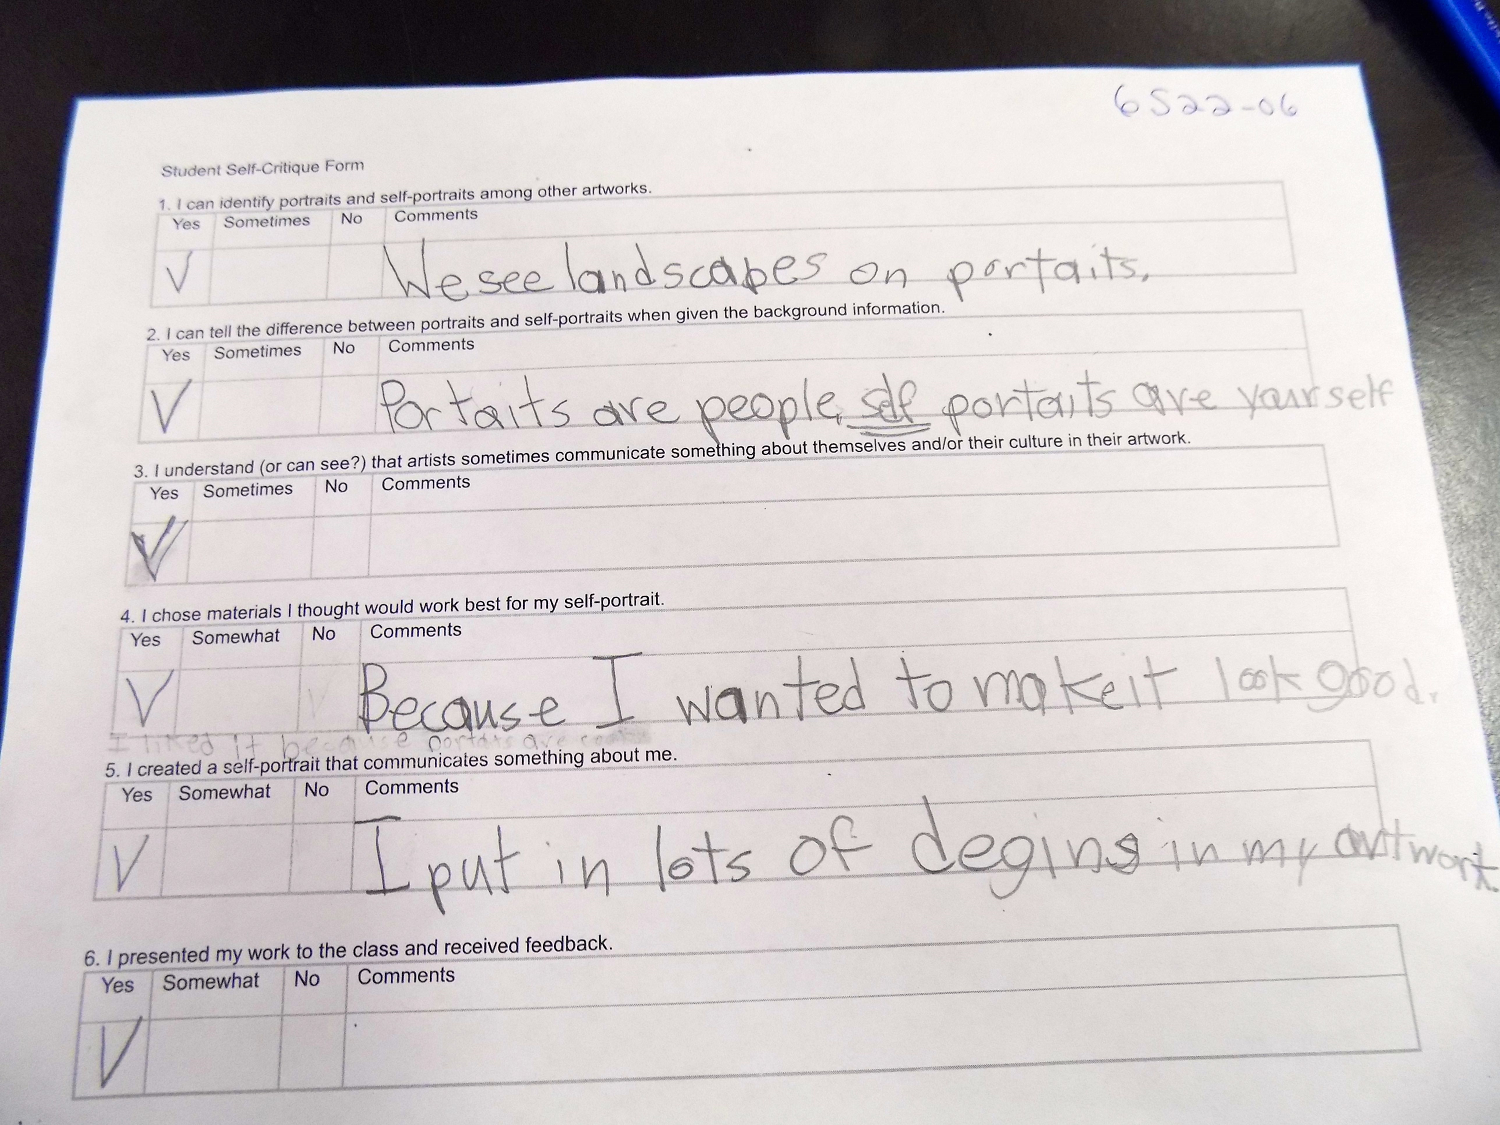 6S22-06
Student Self-Critique Form
1. I can identify portraits and self-portraits among other artworks.
Yes Sometimes No Comments
We see landscapes on portaits.
2. I can tell the difference between portraits and self-portraits when given the background information.
Yes Sometimes No Comments
Portaits are people, self portaits are yourself
3. I understand (or can see?) that artists sometimes communicate something about themselves and/or their culture in their artwork.
Yes Sometimes No Comments
4. I chose materials I thought would work best for my self-portrait.
Yes Somewhat No Comments
Because I wanted to make it look good.
I liked it because portaits are
5. I created a self-portrait that communicates something about me.
Yes Somewhat No Comments
I put in lots of degins in my artwork.
6. I presented my work to the class and received feedback.
Yes Somewhat No Comments